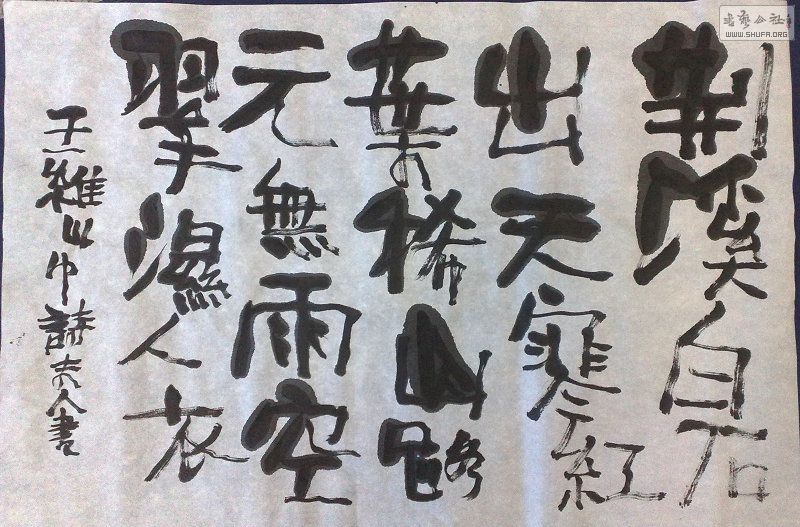 荆溪白石
出天寒紅
葉稀山路
元無雨空
翠濕人衣
王維山中詩人書
書藝公社
WWW.SHUFA.ORG